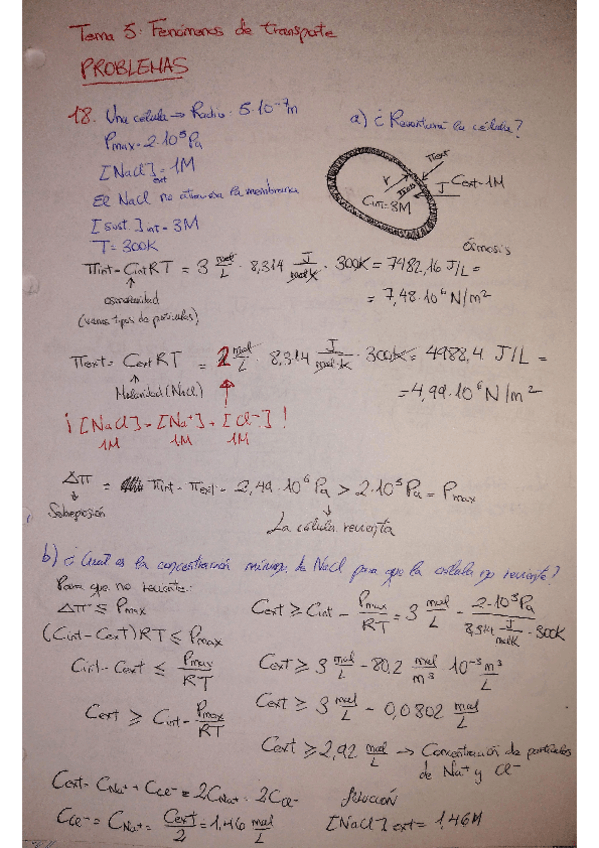 Tema 5: Fenómenos de transporte
PROBLEMAS
18. Una célula → Radio = 5·10⁻⁷m
a) ¿Reventará la célula?
Pmax = 2·10⁵Pa
[NaCl]ext = 1M
El NaCl no atraviesa la membrana
[sust.]int = 3M
T = 300K
πext
r
πint
J
Cext = 1M
Cint = 3M
Ósmosis
πint = CintRT = 3 mol/L · 8,314 J/mol·K · 300K = 7482,16 J/L =
= 7,48·10⁶ N/m²
↑
osmolaridad
(varios tipos de partículas)
πext = CextRT = 2 mol/L · 8,314 J/mol·K · 300K = 4988,4 J/L =
= 4,99·10⁶ N/m²
↑
Molaridad (NaCl)
¡[NaCl] = [Na⁺] + [Cl⁻]!
1M 1M 1M
Δπ = πint - πext = 2,49·10⁶ Pa > 2·10⁵ Pa = Pmax
↓
Sobrepresión
La célula revienta
b) ¿Cuál es la concentración mínima de NaCl para que la célula no reviente?
Para que no reviente:
Δπ ≤ Pmax
(Cint - Cext)RT ≤ Pmax
Cint - Cext ≤ Pmax/RT
Cext ≥ Cint - Pmax/RT
Cext ≥ Cint - Pmax/RT = 3 mol/L - 2·10⁵Pa / 8,314 J/mol·K · 300K
Cext ≥ 3 mol/L - 80,2 mol/m³ 10⁻³m³/L
Cext ≥ 3 mol/L - 0,0802 mol/L
Cext ≥ 2,92 mol/L → Concentración de partículas
de Na⁺ y Cl⁻
Cext = CNa⁺ + CCl⁻ = 2CNa⁺ = 2CCl⁻
CCl⁻ = CNa⁺ = Cext/2 = 1,46 mol/L
Solución
[NaCl]ext = 1,46M